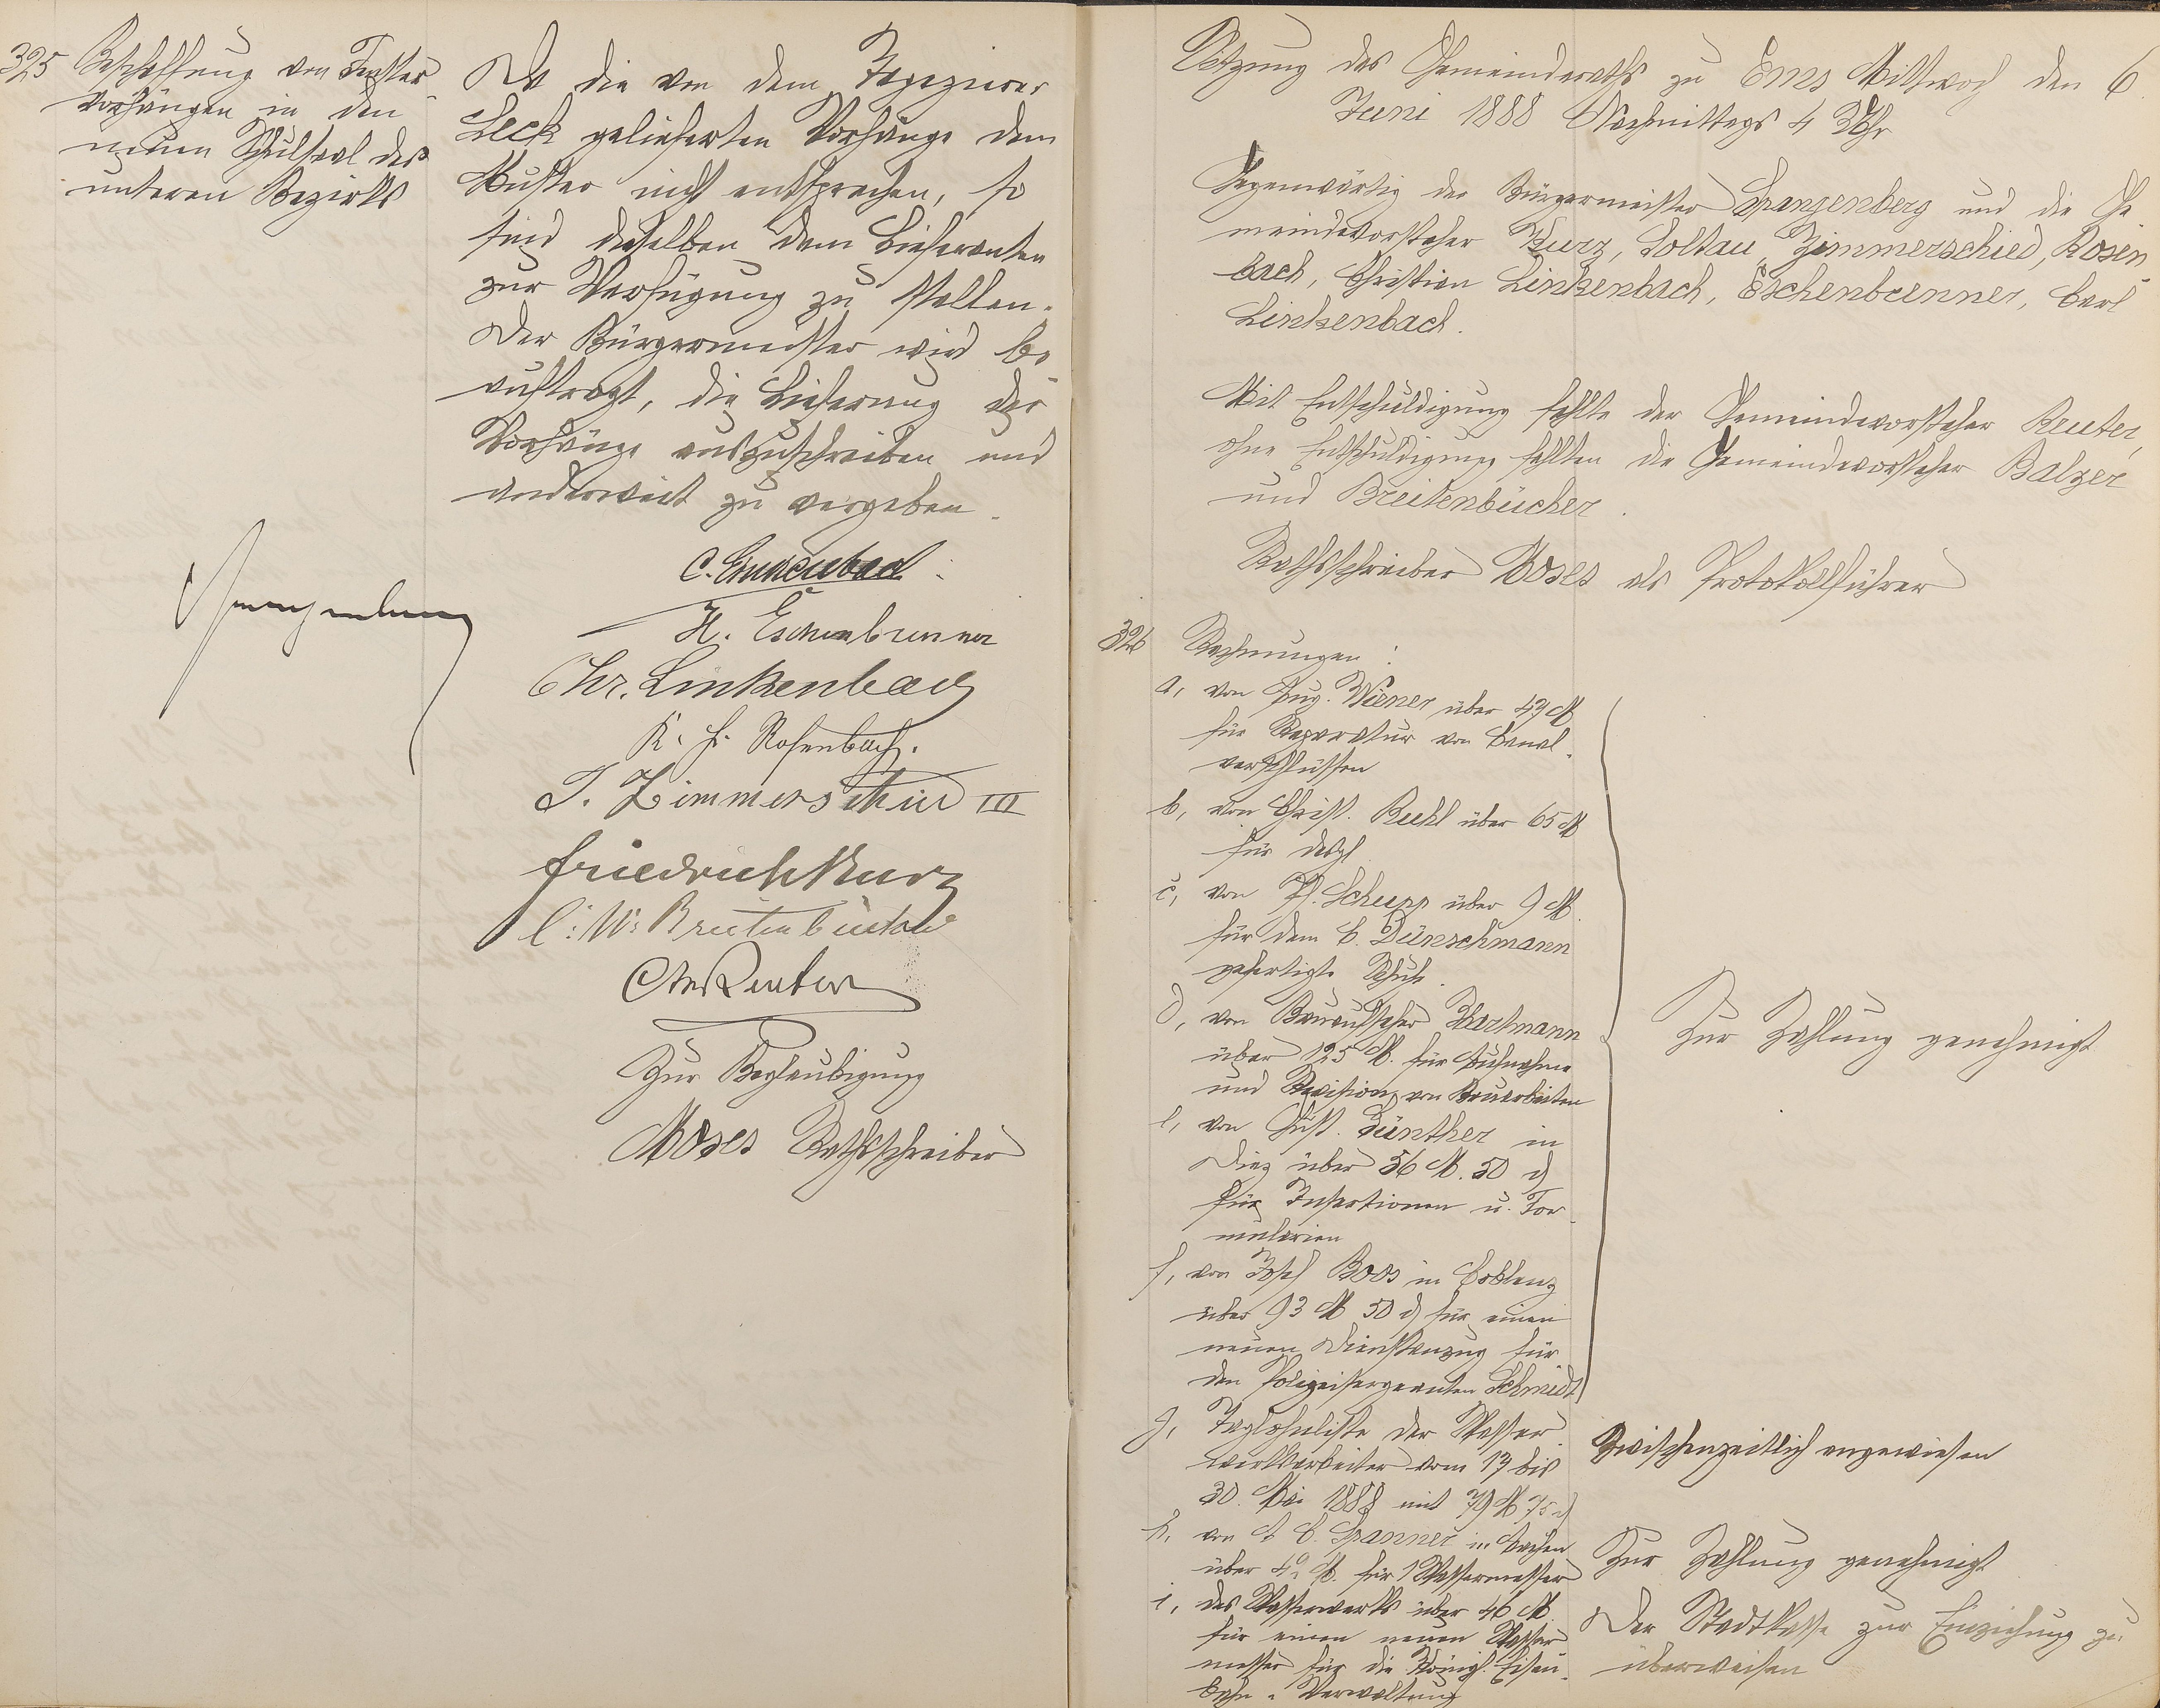 325
Beschaffung von Fenster-
vorhängen in den
neuen Schulsaal des
unteren Bezirks
Da die von dem Tapezierer
Leck gelieferten Vorhänge dem
Muster nicht entsprechen, so
sind dieselben dem Lieferanten
zur Verfügung zu stellen.
Der Bürgermeister wird be-
auftragt, die Lieferung der
Vorhänge auszuschreiben und
anderweit zu vergeben.
Spangenberg
C. Linkenbach
H. Eschenbrenner
Chr. Linkenbach
K. H. Rosenbach.
J. Zimmerschied III
Friedrich Kurz
C. W. Breitenbücher
Chr Reuter
Zur Beglaubigung
Moses Rathsschreiber
Sitzung des Gemeinderaths zu Ems Mittwoch den 6.
Juni 1888 Nachmittags 4 Uhr
Gegenwärtig der Bürgermeister Spangenberg und die Ge-
meindevorsteher Kurz, Soltau, Zimmerschied, Rosen-
bach, Christian Linkenbach, Eschenbrenner, Carl
Linkenbach.
Mit Entschuldigung fehlte der Gemeindevorsteher Reuter,
ohne Entschuldigung fehlten die Gemeindevorsteher Balzer
und Breitenbücher.
Rathsschreiber Moses als Protokollführer
326 Rechnungen:
a, von Aug. Wiener über 49 M
für Reparatur von Canal-
verschlüssen
b, von Christ. Ruhl über 65 M
für desgl
c, von Ph. Schupp über 9 M.
für dem C. Dünschmann
gefertigte Schuhe.
d, von Bauaufseher Hartmann
über 125 M. für Aufnahme
und Revision von Bauarbeiten
e, von Gust. Günther in
Diez über 56 M. 50 ₰
für Insertionen u. For-
mularien
f, von Josef Boos in Coblenz
über 93 M 50 ₰ für einen
neuen Dienstanzug für
den Polizeisergeanten Schmidt
Zur Zahlung genehmigt
g, Taglohnliste der Wasser-
werksarbeiter vom 17 bis
30. Mai 1888 mit 79 M 75 ₰
Zwischenzeitlich angewiesen
h, von A C. Spanner in Aachen
über M. für 1 Wassermesser
Zur Zahlung genehmigt
i, des Wasserwerks über 46 M.
für einen neuen Wasser-
messer für die Königl. Eisen-
bahn-Verwaltung
Der Stadtkasse zur Einziehung zu
überweisen